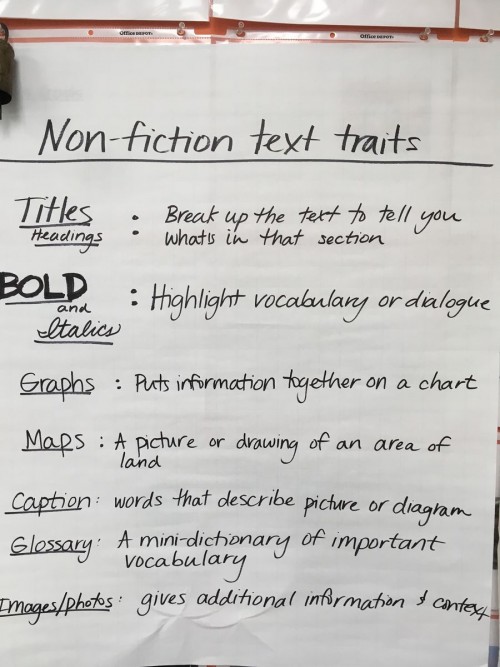 Office DEPOT. Office DEPOT.
Non-fiction text traits
Titles : Break up the text to tell you
Headings : whats in that section
BOLD
and : Highlight vocabulary or dialogue
Italics
Graphs : Puts information together on a chart
Maps : A picture or drawing of an area of
land
Caption : words that describe picture or diagram
Glossary : A mini-dictionary of important
vocabulary
Images/photos : gives additional information & context